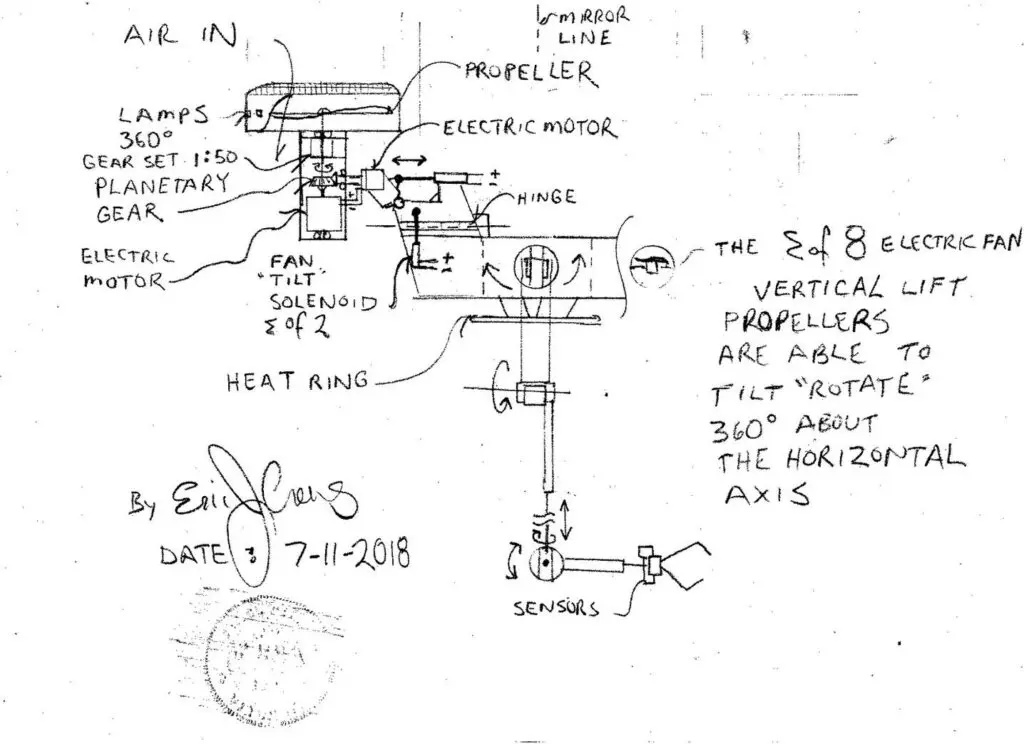 MIRROR
LINE
AIR IN
PROPELLER
LAMPS
360°
ELECTRIC MOTOR
GEAR SET 1:50
PLANETARY
GEAR
+
-
HINGE
ELECTRIC
MOTOR
FAN
"TILT"
SOLENOID
Σ of 2
+
-
THE Σ of 8 ELECTRIC FAN
VERTICAL LIFT
PROPELLERS
ARE ABLE TO
TILT "ROTATE"
360° ABOUT
THE HORIZONTAL
AXIS
HEAT RING
By Eric
DATE 7-11-2018
SENSORS